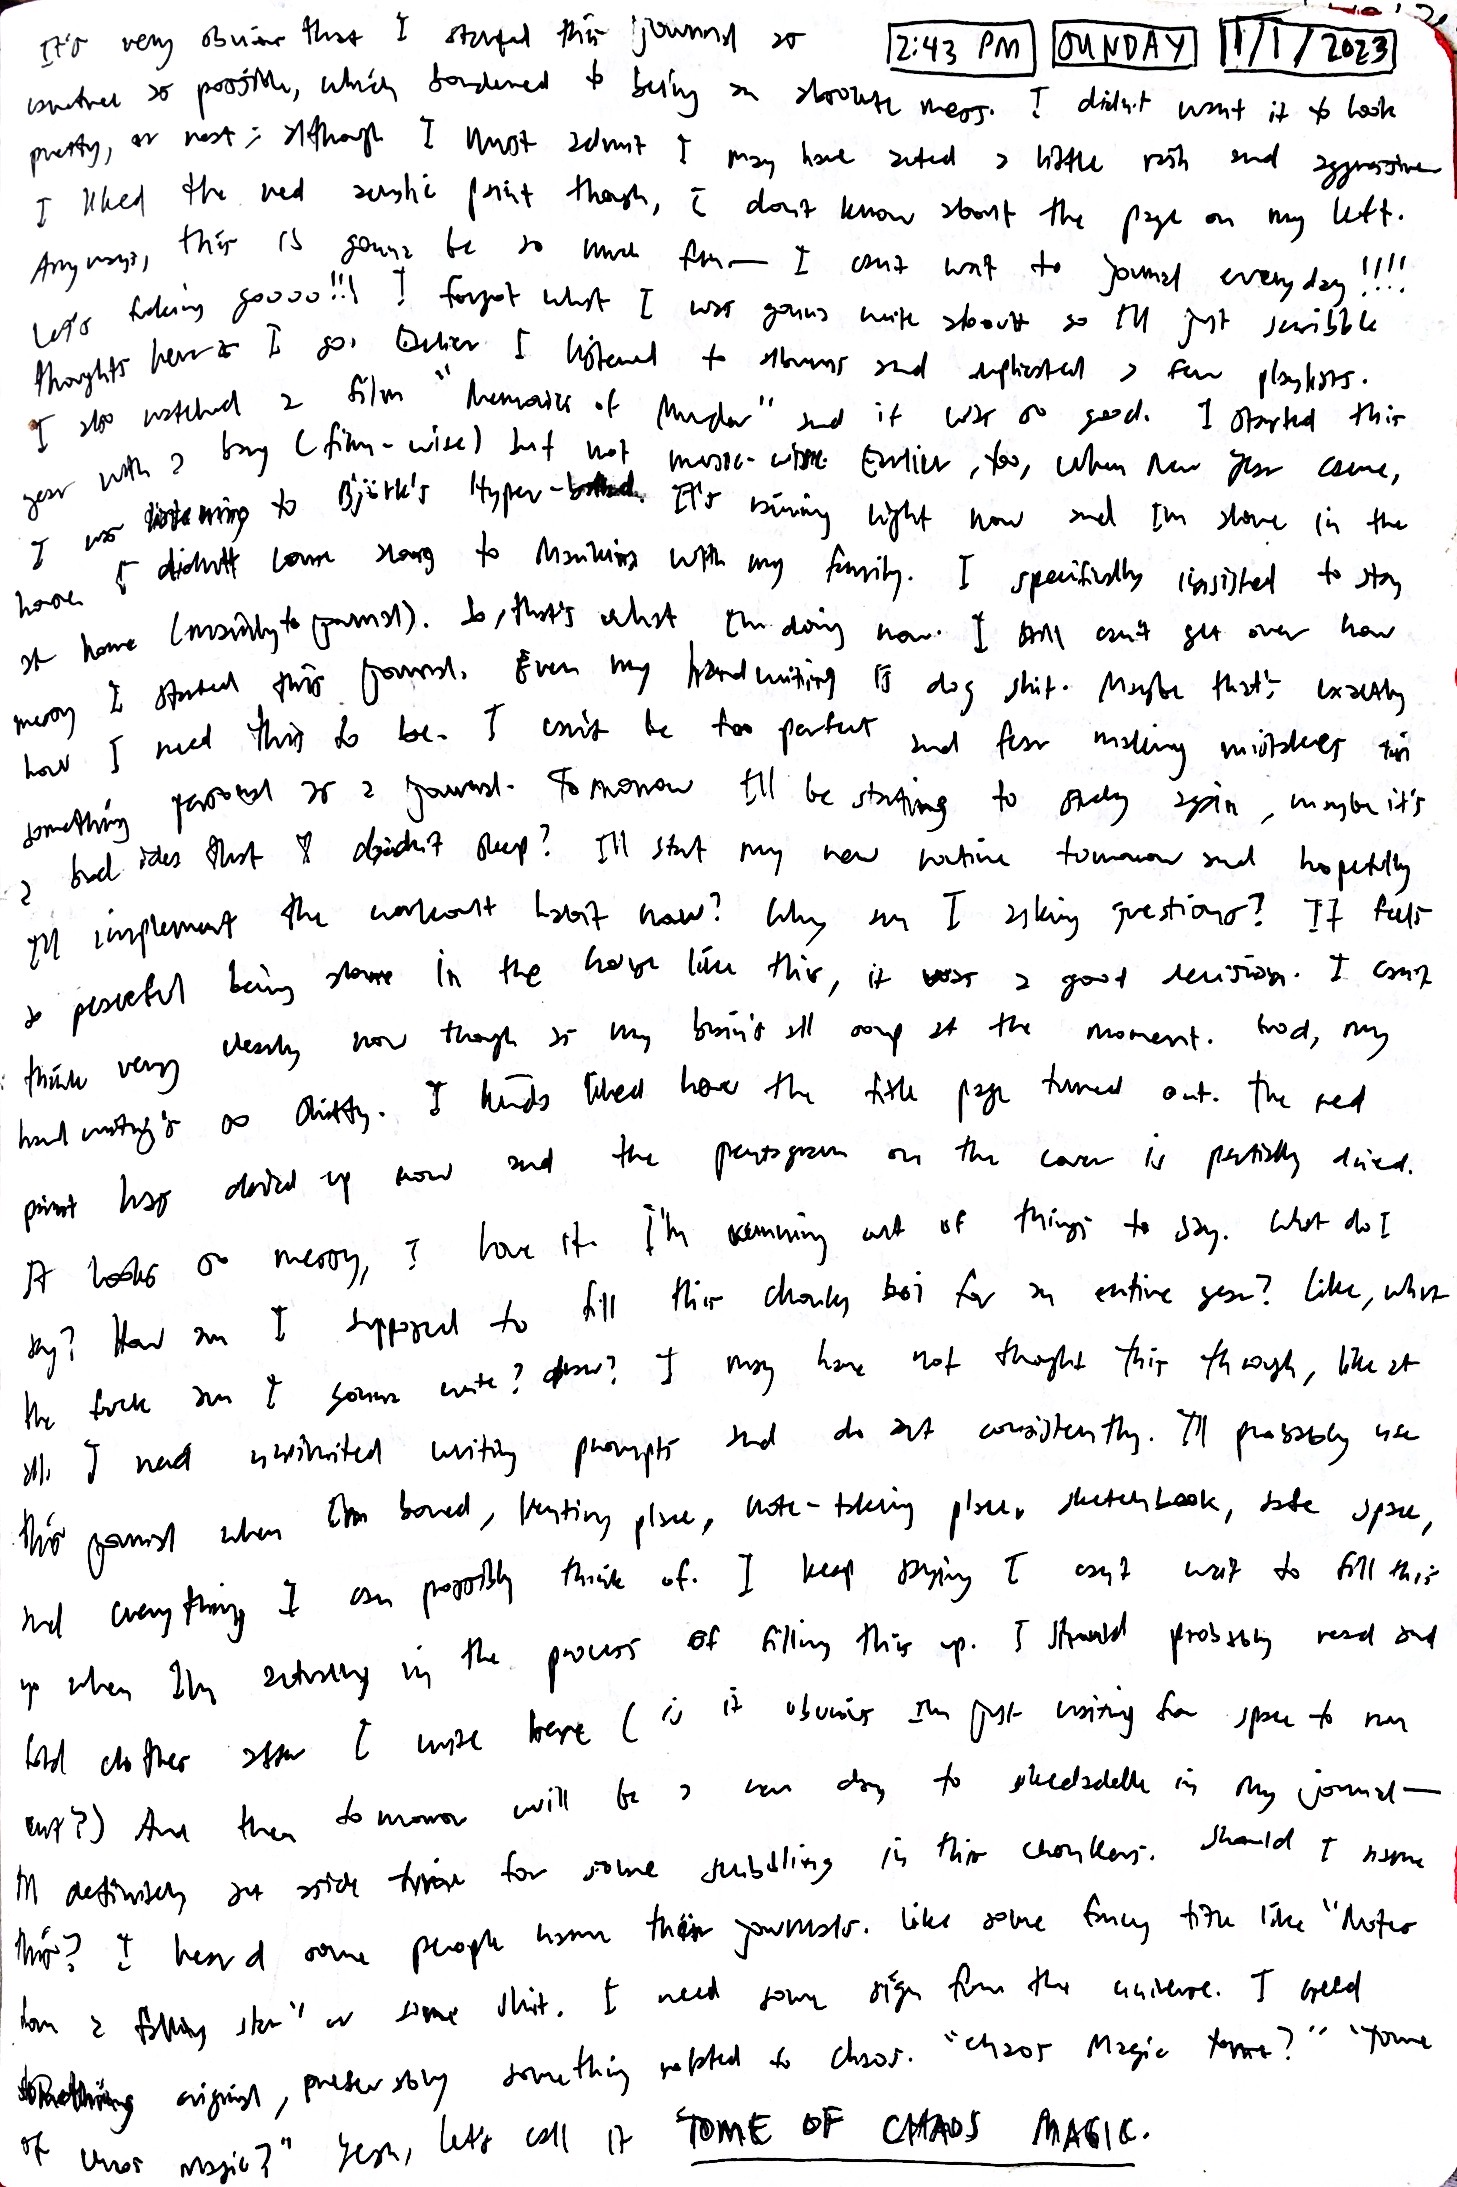 2:43 PM SUNDAY 1/1/2023
It's very obvious that I started this journal as
creative as possible, which bordered to being an absolute mess. I didn't want it to look
pretty, or neat; although I must admit I may have acted a little rash and aggressive
I liked the red acrylic paint though, I don't know about the page on my left.
Anyways, this is gonna be so much fun— I can't wait to journal everyday!!!!
Let's fucking goooo!!! I forgot what I was gonna write about so I'll just scribble
thoughts here as I go. Earlier I listened to albums and replicated a few playlists.
I also watched a film "Memories of Murder" and it was so good. I started this
year with a bang (film-wise) but not music-wise. Earlier, too, when New Year came,
I was listening to Björk's Hyper-ballad. It's raining right now and I'm alone in the
house I didn't come along to Marikina with my family. I specifically insisted to stay
at home (mainly to journal). So, that's what I'm doing now. I still can't get over how
messy I started this journal. Even my handwriting is dog shit. Maybe that's exactly
how I need this to be. I can't be too perfect and fear making mistakes in
something personal as a journal. Tomorrow I'll be starting to study again, maybe it's
a bad idea that I didn't sleep? I'll start my new routine tomorrow and hopefully
I'll implement the workout habit now? Why am I asking questions? It feels
so peaceful being alone in the house like this, it was a good decision. I can't
think very clearly now though as my brain's all soup at the moment. God, my
handwriting's so shitty. I kinda liked how the title page turned out. The red
paint has dried up now and the pentagram on the cover is partially dried.
It looks so messy, I love it. I'm running out of things to say. What do I
say? How am I supposed to fill this chonky boi for an entire year? Like, what
the fuck am I gonna write? draw? I may have not thought this through, like at
all. I need unlimited writing prompts and do art consistently. I'll probably use
this journal when I'm bored, venting place, note-taking place, sketchbook, safe space,
and everything I can possibly think of. I keep saying I can't wait to fill this
up when I'm actually in the process of filling this up. I should probably read and
fold clothes after I write here (is it obvious I'm just waiting for space to run
out?) And then tomorrow will be a new day to in my journal—
I'll definitely set aside time for some scribbling in this chonkers. Should I name
this? I heard some people name their journals. Like some fancy title like "Notes
from a falling star" or some shit. I need some sign from the universe. I need
something original, preferably something related to chaos. "Chaos Magic Tome?" "Tome
of Chaos Magic?" Yeah, let's call it TOME OF CHAOS MAGIC.